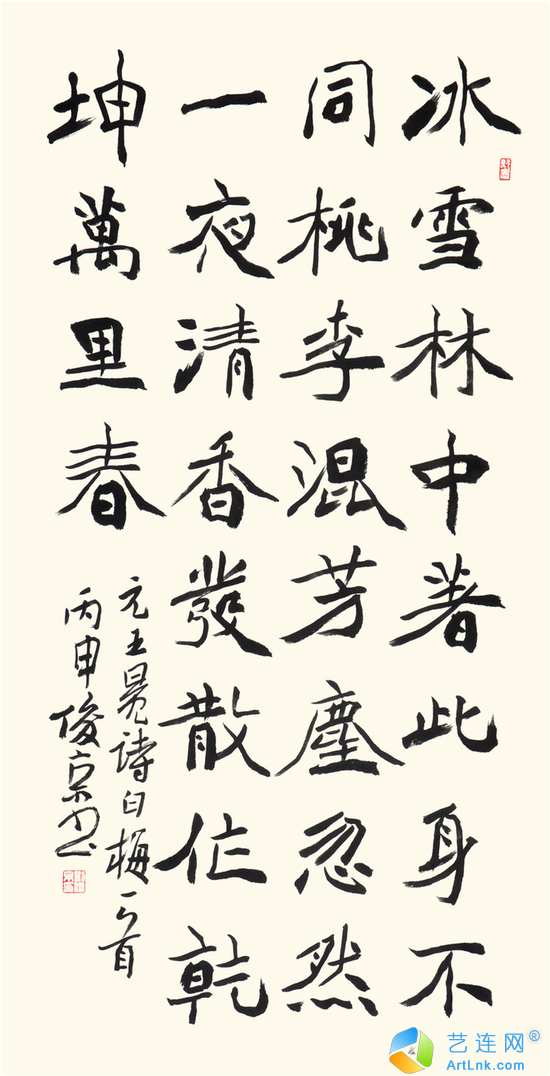 冰雪林中著此身不
同桃李混芳塵忽然
一夜清香發散作乾
坤萬里春
元王冕詩白梅一首
丙申俊京书
艺连网®
ArtLnk.com